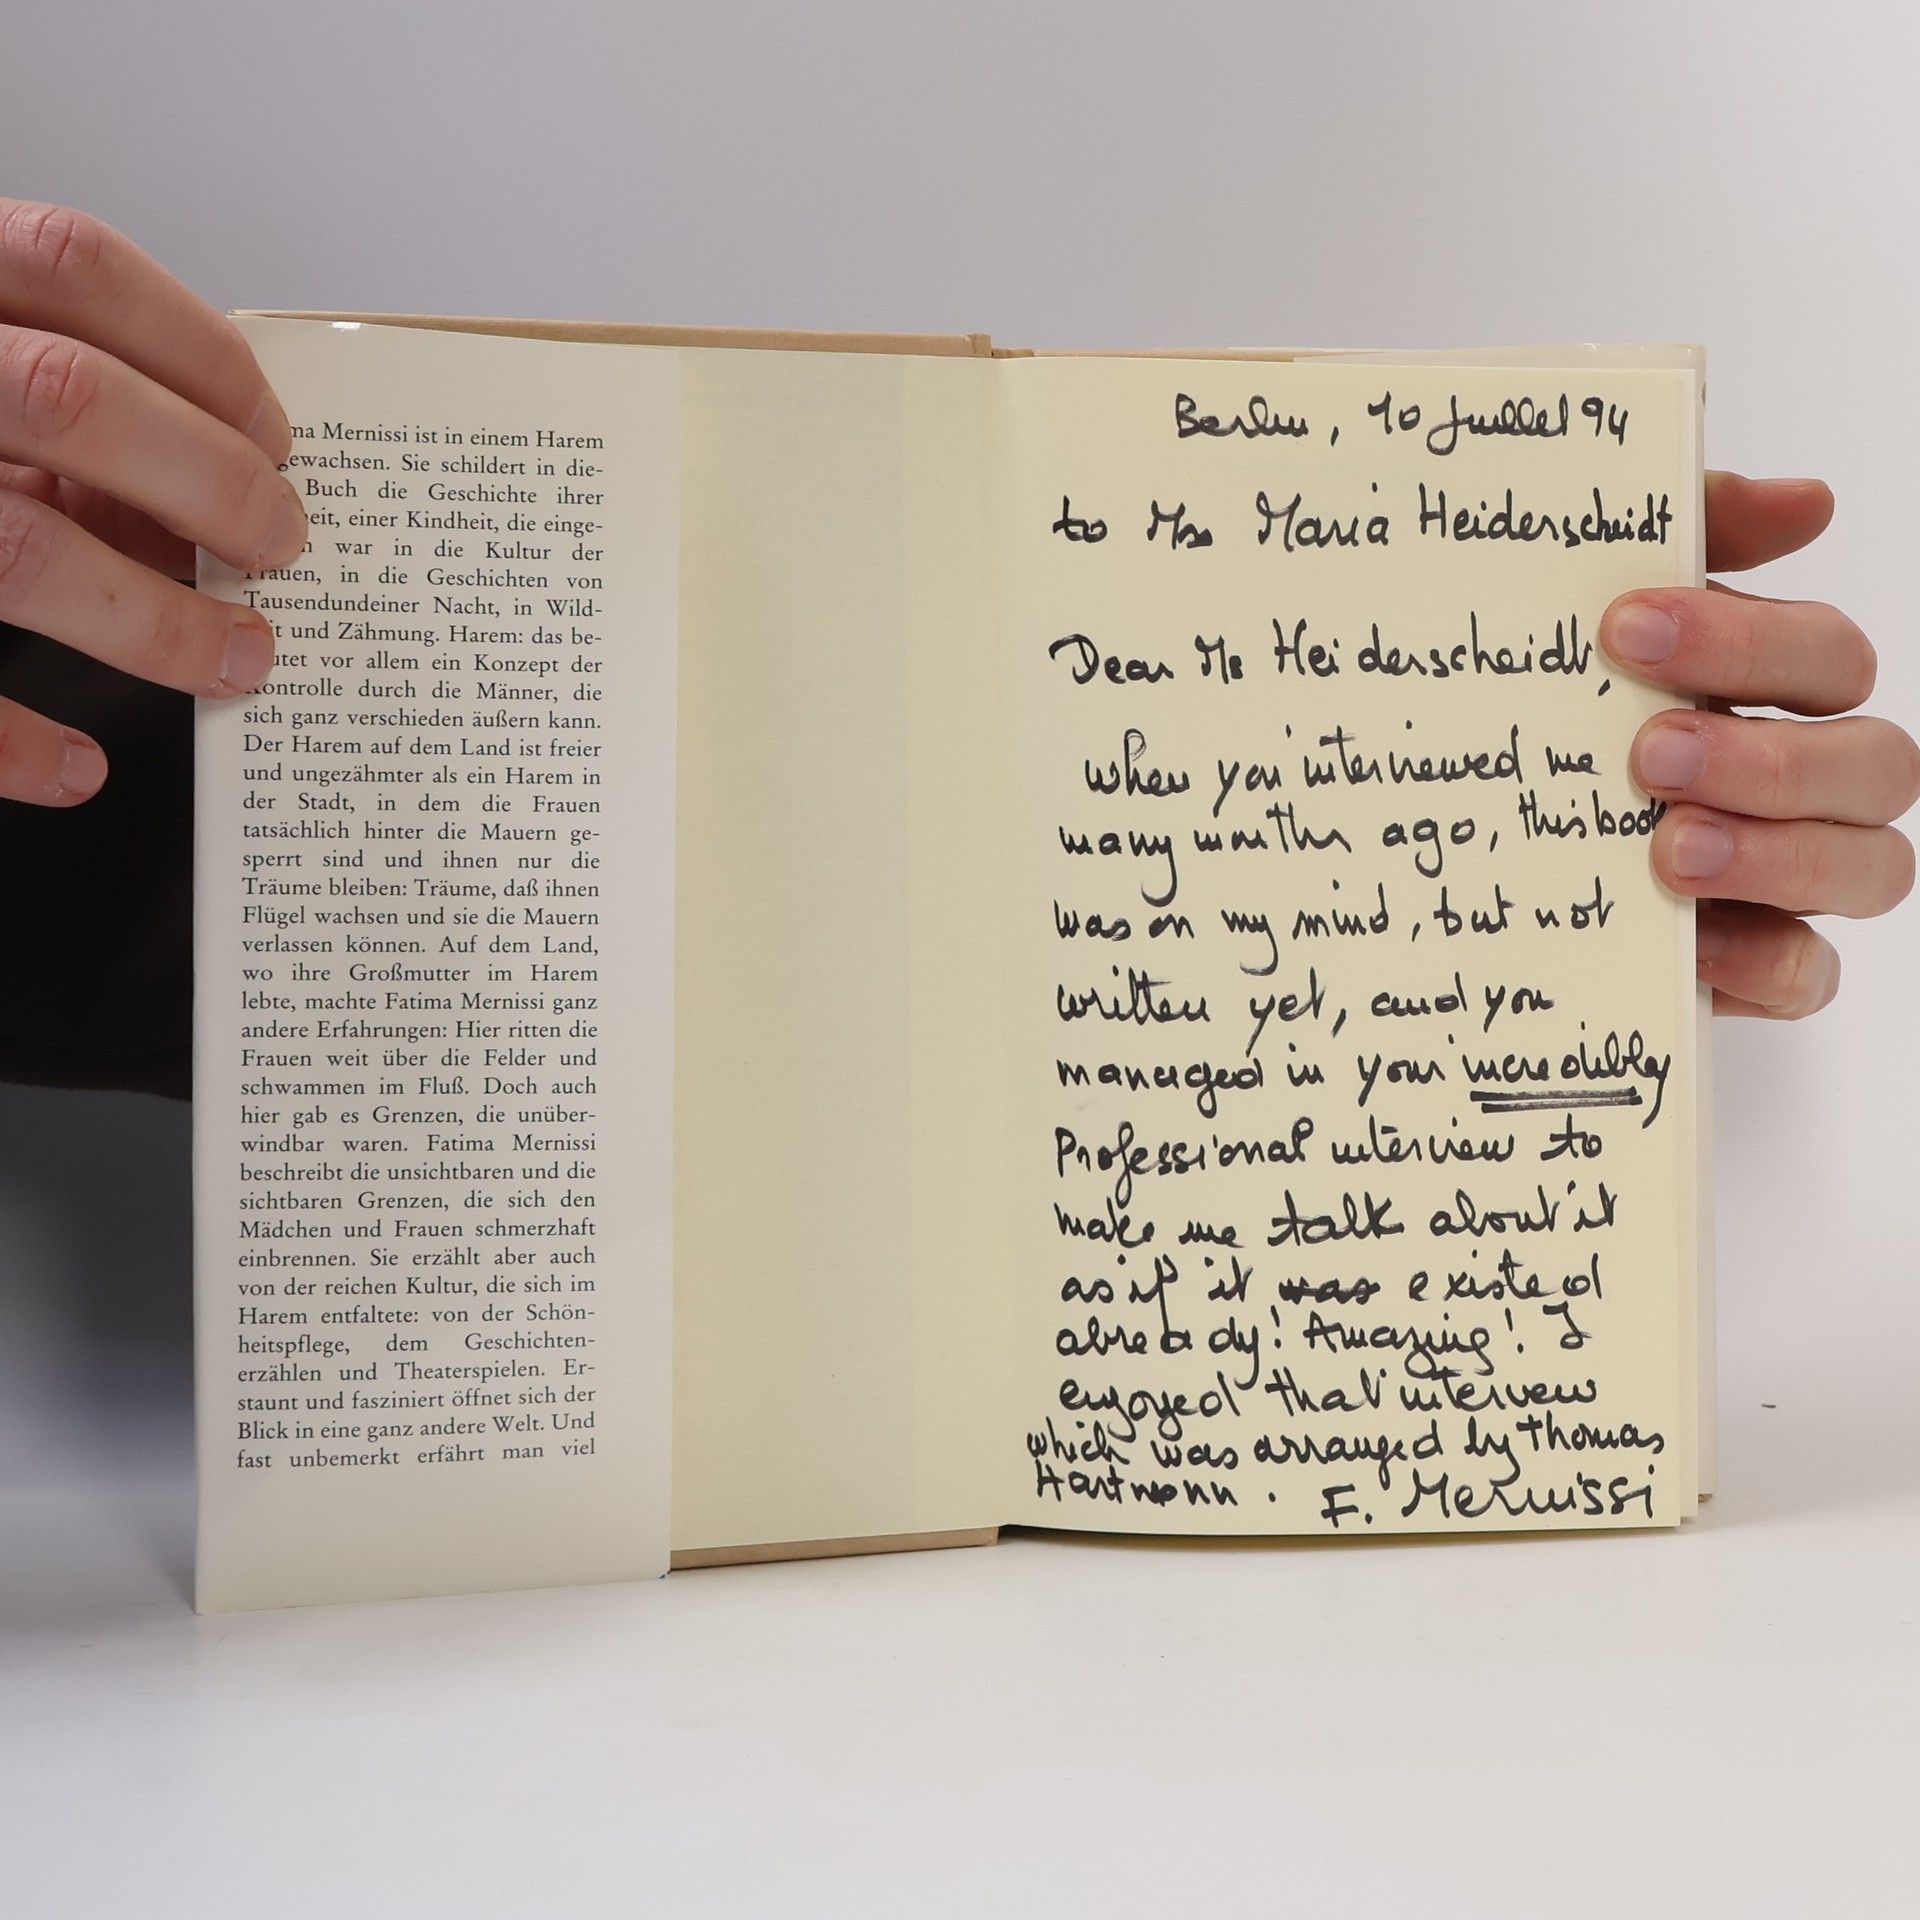 ma Mernissi ist in einem Harem
gewachsen. Sie schildert in die-
Buch die Geschichte ihrer
eit, einer Kindheit, die einge-
war in die Kultur der
Frauen, in die Geschichten von
Tausendundeiner Nacht, in Wild-
it und Zähmung. Harem: das be-
utet vor allem ein Konzept der
Kontrolle durch die Männer, die
sich ganz verschieden äußern kann.
Der Harem auf dem Land ist freier
und ungezähmter als ein Harem in
der Stadt, in dem die Frauen
tatsächlich hinter die Mauern ge-
sperrt sind und ihnen nur die
Träume bleiben: Träume, daß ihnen
Flügel wachsen und sie die Mauern
verlassen können. Auf dem Land,
wo ihre Großmutter im Harem
lebte, machte Fatima Mernissi ganz
andere Erfahrungen: Hier ritten die
Frauen weit über die Felder und
schwammen im Fluß. Doch auch
hier gab es Grenzen, die unüber-
windbar waren. Fatima Mernissi
beschreibt die unsichtbaren und die
sichtbaren Grenzen, die sich den
Mädchen und Frauen schmerzhaft
einbrennen. Sie erzählt aber auch
von der reichen Kultur, die sich im
Harem entfaltete: von der Schön-
heitspflege, dem Geschichten-
erzählen und Theaterspielen. Er-
staunt und fasziniert öffnet sich der
Blick in eine ganz andere Welt. Und
fast unbemerkt erfährt man viel
Berlin, 10 Juillet 94
to Ms Maria Heiderscheidt
Dear Ms Heiderscheidt,
when you interviewed me
many months ago, this book
was on my mind, but not
written yet, and you
managed in your incredibly
Professional interview to
make me talk about it
as if it was existed
already! Amazing! I
enjoyed that interview
which was arranged by Thomas
Hartmann. F. Mernissi